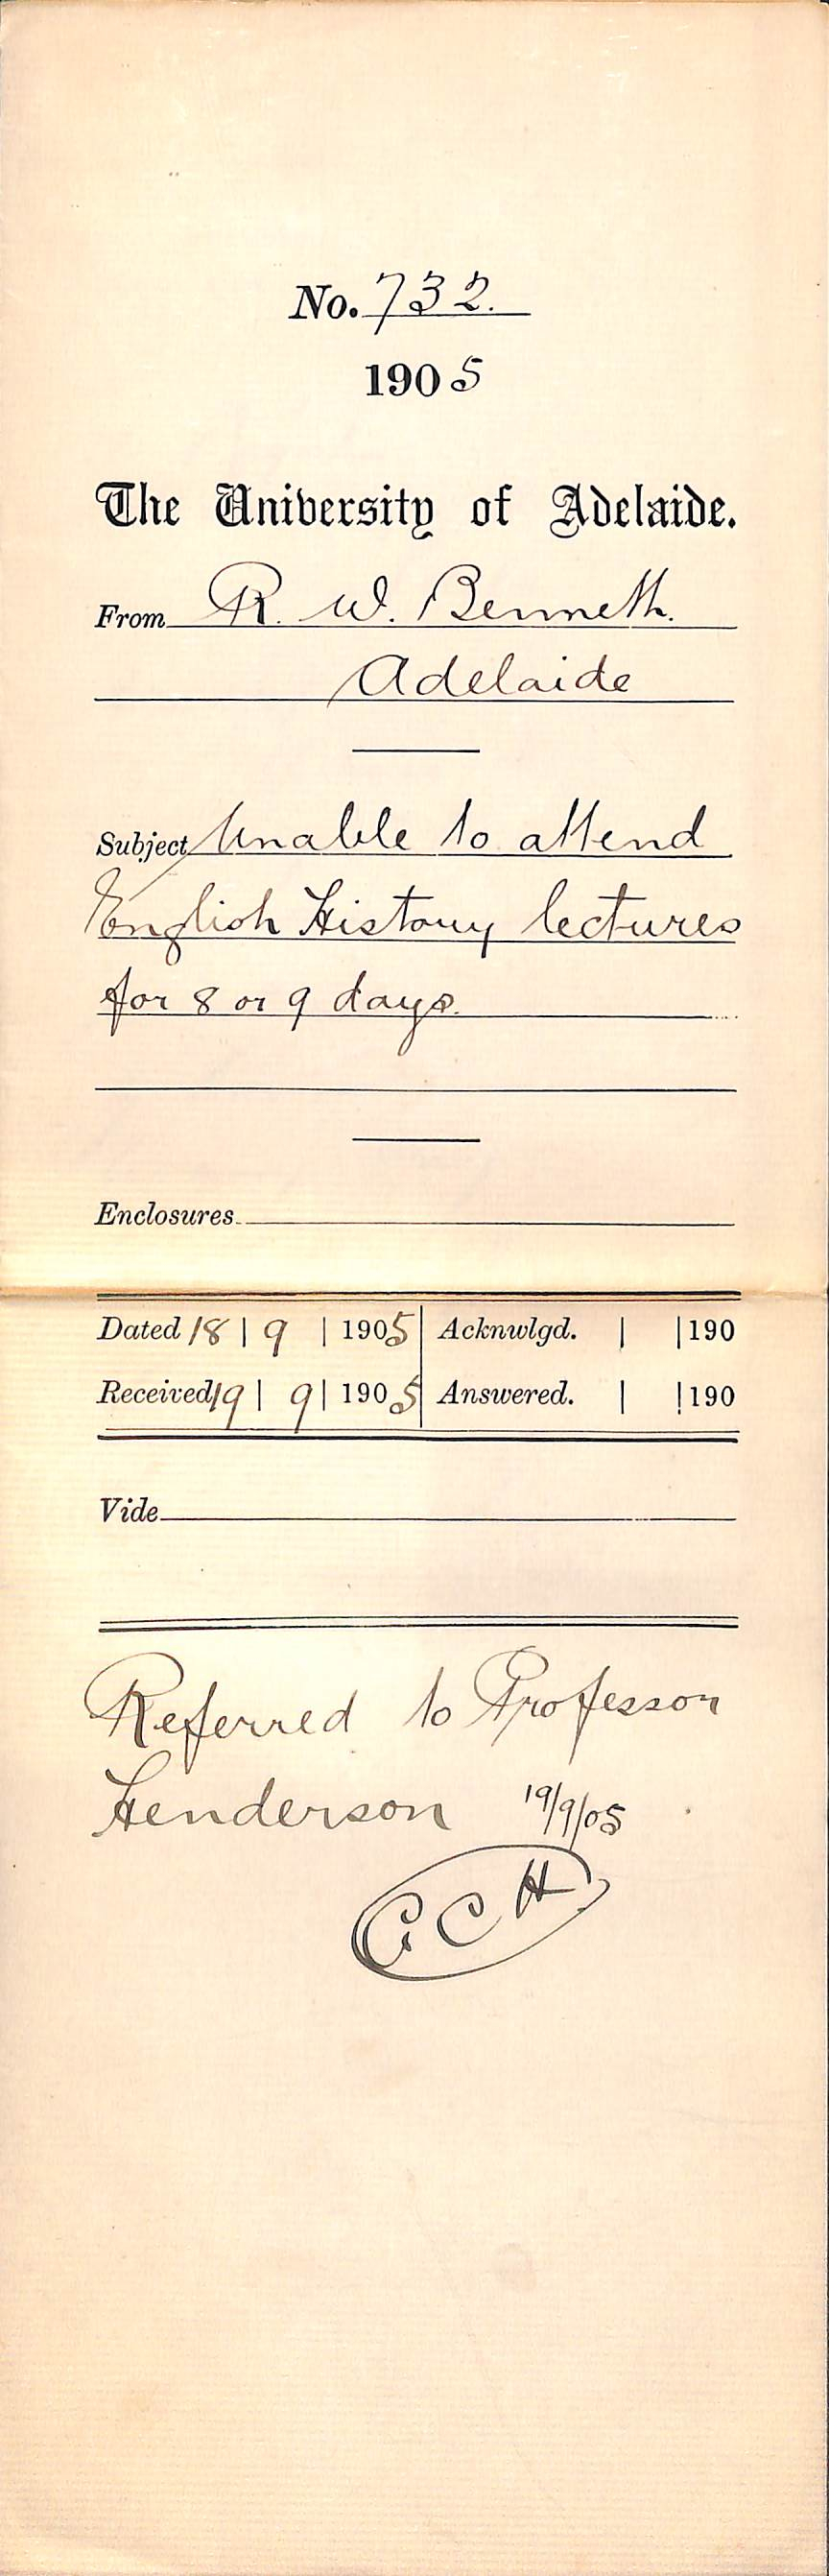 No. 732.
1905
The University of Adelaide.
From R. W. Bennett.
Adelaide
Subject Unable to attend
English History lectures
for 8 or 9 days.
Enclosures
Dated 18 | 9 | 1905 Acknwlgd. | |190
Received 19 | 9 | 1905 Answered. | |190
Vide
Referred to Professor
Henderson 19/9/05
C C H.